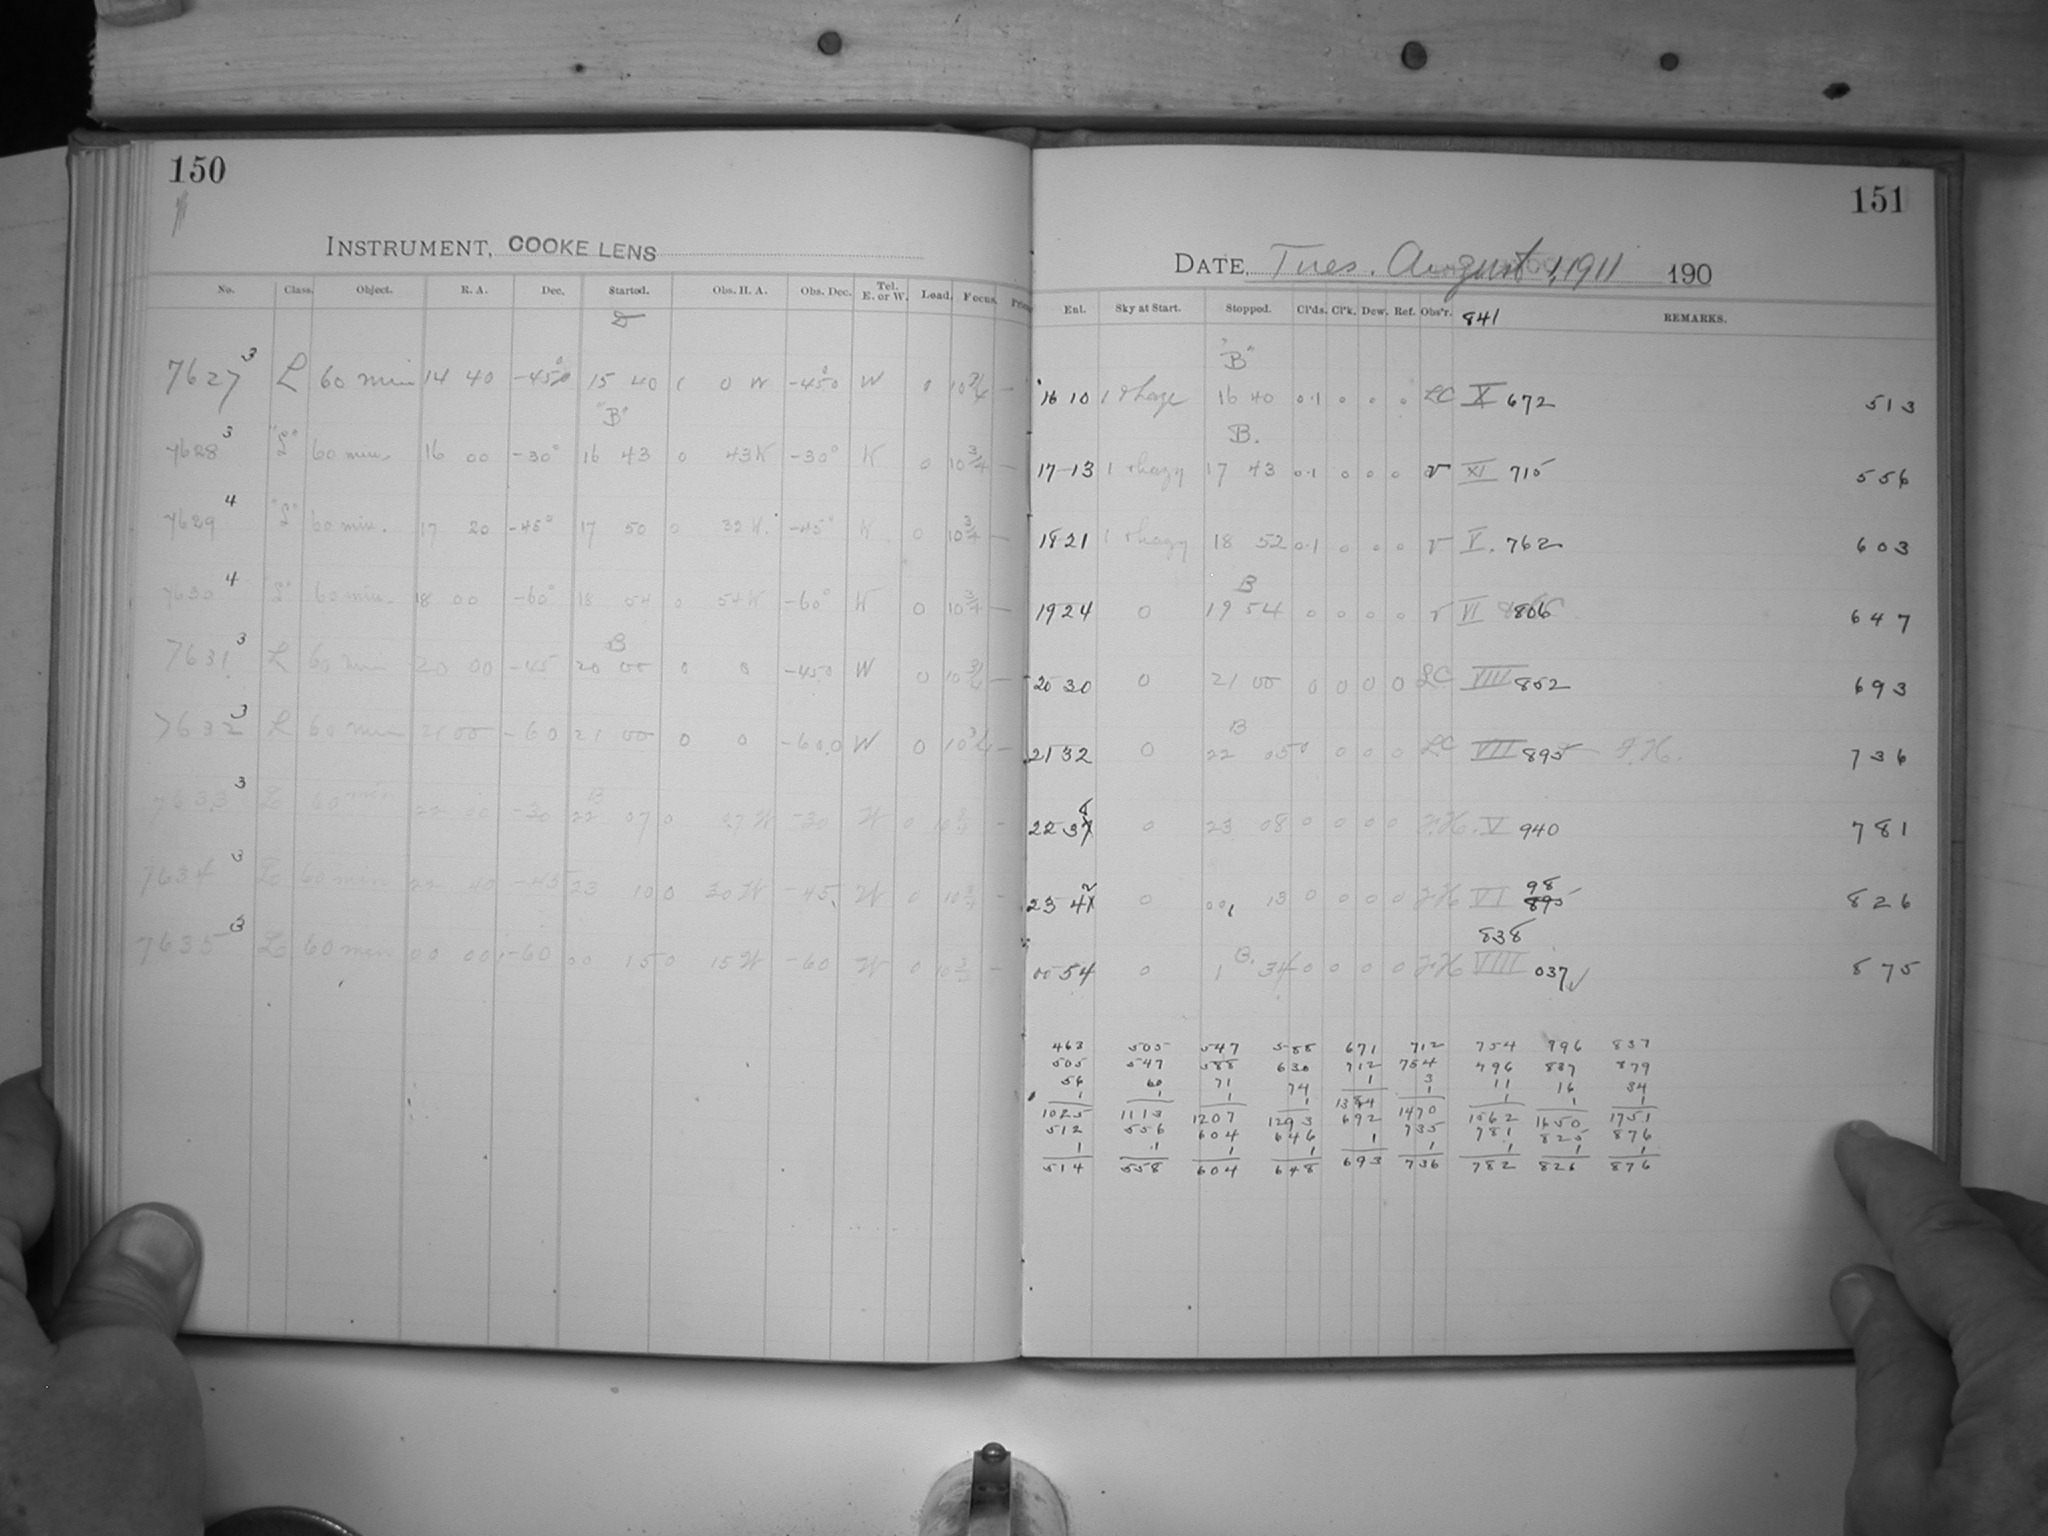 150
INSTRUMENT, COOKE LENS
No. Class. Object. R. A. Dec. Started. Obs. H. A. Obs. Dec. Tel. E. or W. Load. Focus.
7627 3 L 60 min 14 40 -45° 15 40 0 W -45° W 0 10 3/4 —
"B"
7628 3 "L" 60 min. 16 00 -30° 16 43 0 43 W -30° W 0 10 3/4 —
7629 4 "L" 60 min. 17 20 -45° 17 50 0 32 W. -45° W 0 10 3/4 —
7630 4 "L" 60 min. 18 00 -60° 18 54 0 54 W -60° W 0 10 3/4 —
B
7631 3 L 60 min 20 00 -45 20 00 0 0 -45 0 W 0 10 3/4 —
7632 3 L 60 min 21 00 -60 21 00 0 0 -60.0 W 0 10 3/4 —
B
7633 3 L 60 min 22 00 -30 22 07 0 07 W -30 W 0 10 3/4 —
7634 3 L 60 min 22 40 -45 23 10 0 30 W -45 W 0 10 3/4 —
7635 3 L 60 min 00 00 -60 00 15 0 15 W -60 W 0 10 3/4 —
151
DATE, Tues. August 1, 1911 190
Ent. Sky at Start. Stopped. Cl'ds. Cl'k. Dew. Ref. Obs'r. 841 REMARKS.
"B"
16 10 1 16 40 0.1 0 0 0 LC X 672 513
B.
17-13 1 hazy 17 43 0.1 0 0 0 v XI 715 556
18 21 1 hazy 18 52 0.1 0 0 0 v V. 762 603
B
19 24 0 19 54 0 0 0 0 v VI 806 647
20 30 0 21 00 0 0 0 0 LC VIII 852 693
B
21 32 0 22 05 0 0 0 0 LC VII 895 F.H. 736
8
22 37 0 23 08 0 0 0 0 F.H. V 940 781
2 98
23 41 0 00 13 0 0 0 0 F.H VI 895 826
838
B.
00 54 0 1 34 0 0 0 0 F.H VIII 037 875
463 505 547 588 671 712 754 796 837
505 547 588 630 712 754 796 837 879
56 60 71 74 1 3 11 16 34
1 1 1 1 1384 1 1 1 1
1025 1113 1207 1293 692 1470 1562 1650 1751
512 556 604 646 1 735 781 825 876
1 1 1 1 693 1 1 1 1
514 558 604 648 736 782 826 876